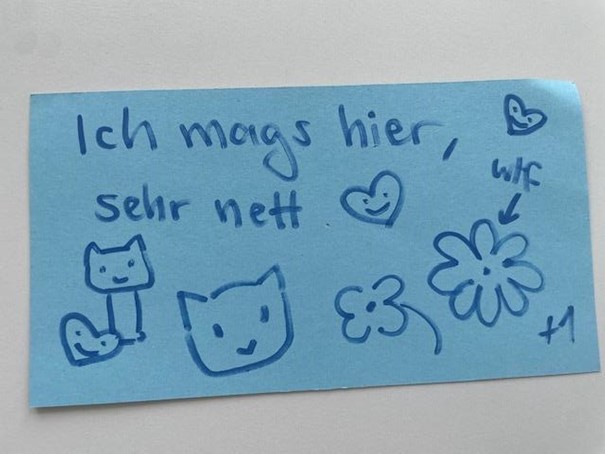 Ich mags hier,
sehr nett
wtf
+1